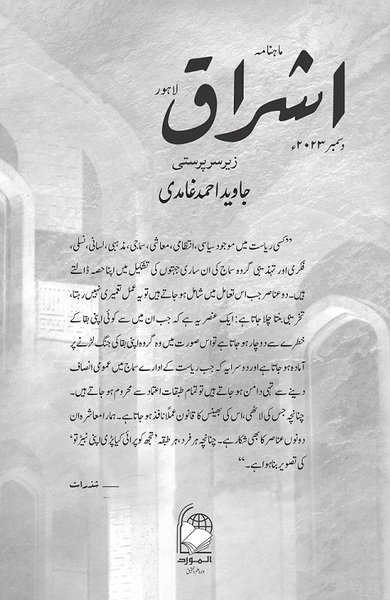 ماہنامہ
اشراق
لاہور
دسمبر ۲۰۲۳ء
زیر سرپرستی
جاوید احمد غامدی
”کسی ریاست میں موجود سیاسی، انتظامی، معاشی، سماجی، مذہبی، لسانی، نسلی،
فکری اور تہذیبی گروہ سماج کی ان ساری جہتوں کی تشکیل میں اپنا حصہ ڈالتے
ہیں۔ دو عناصر جب اس تعامل میں شامل ہو جاتے ہیں تو یہ عمل تعمیری نہیں رہتا،
تخریبی بنتا چلا جاتا ہے: ایک عنصر یہ ہے کہ جب ان میں سے کوئی اپنی بقا کے
خطرے سے دوچار ہو جاتا ہے تو اس صورت میں وہ گروہ اپنی بقا کی جنگ لڑنے پر
آمادہ ہو جاتا ہے اور دوسرا یہ کہ جب ریاست کے ادارے سماج میں عمومی انصاف
دینے سے تہی دامن ہو جاتے ہیں تو تمام طبقات اعتماد سے محروم ہو جاتے ہیں۔
چنانچہ جس کی لاٹھی، اس کی بھینس کا قانون عملاً نافذ ہو جاتا ہے۔ ہمارا معاشرہ ان
دونوں عناصر کا بھی شکار ہے۔ چنانچہ ہر فرد، ہر طبقہ ’تجھ کو پرائی کیا پڑی اپنی نبیڑ تو‘
کی تصویر بنا ہوا ہے۔“
— شذرات
المورد